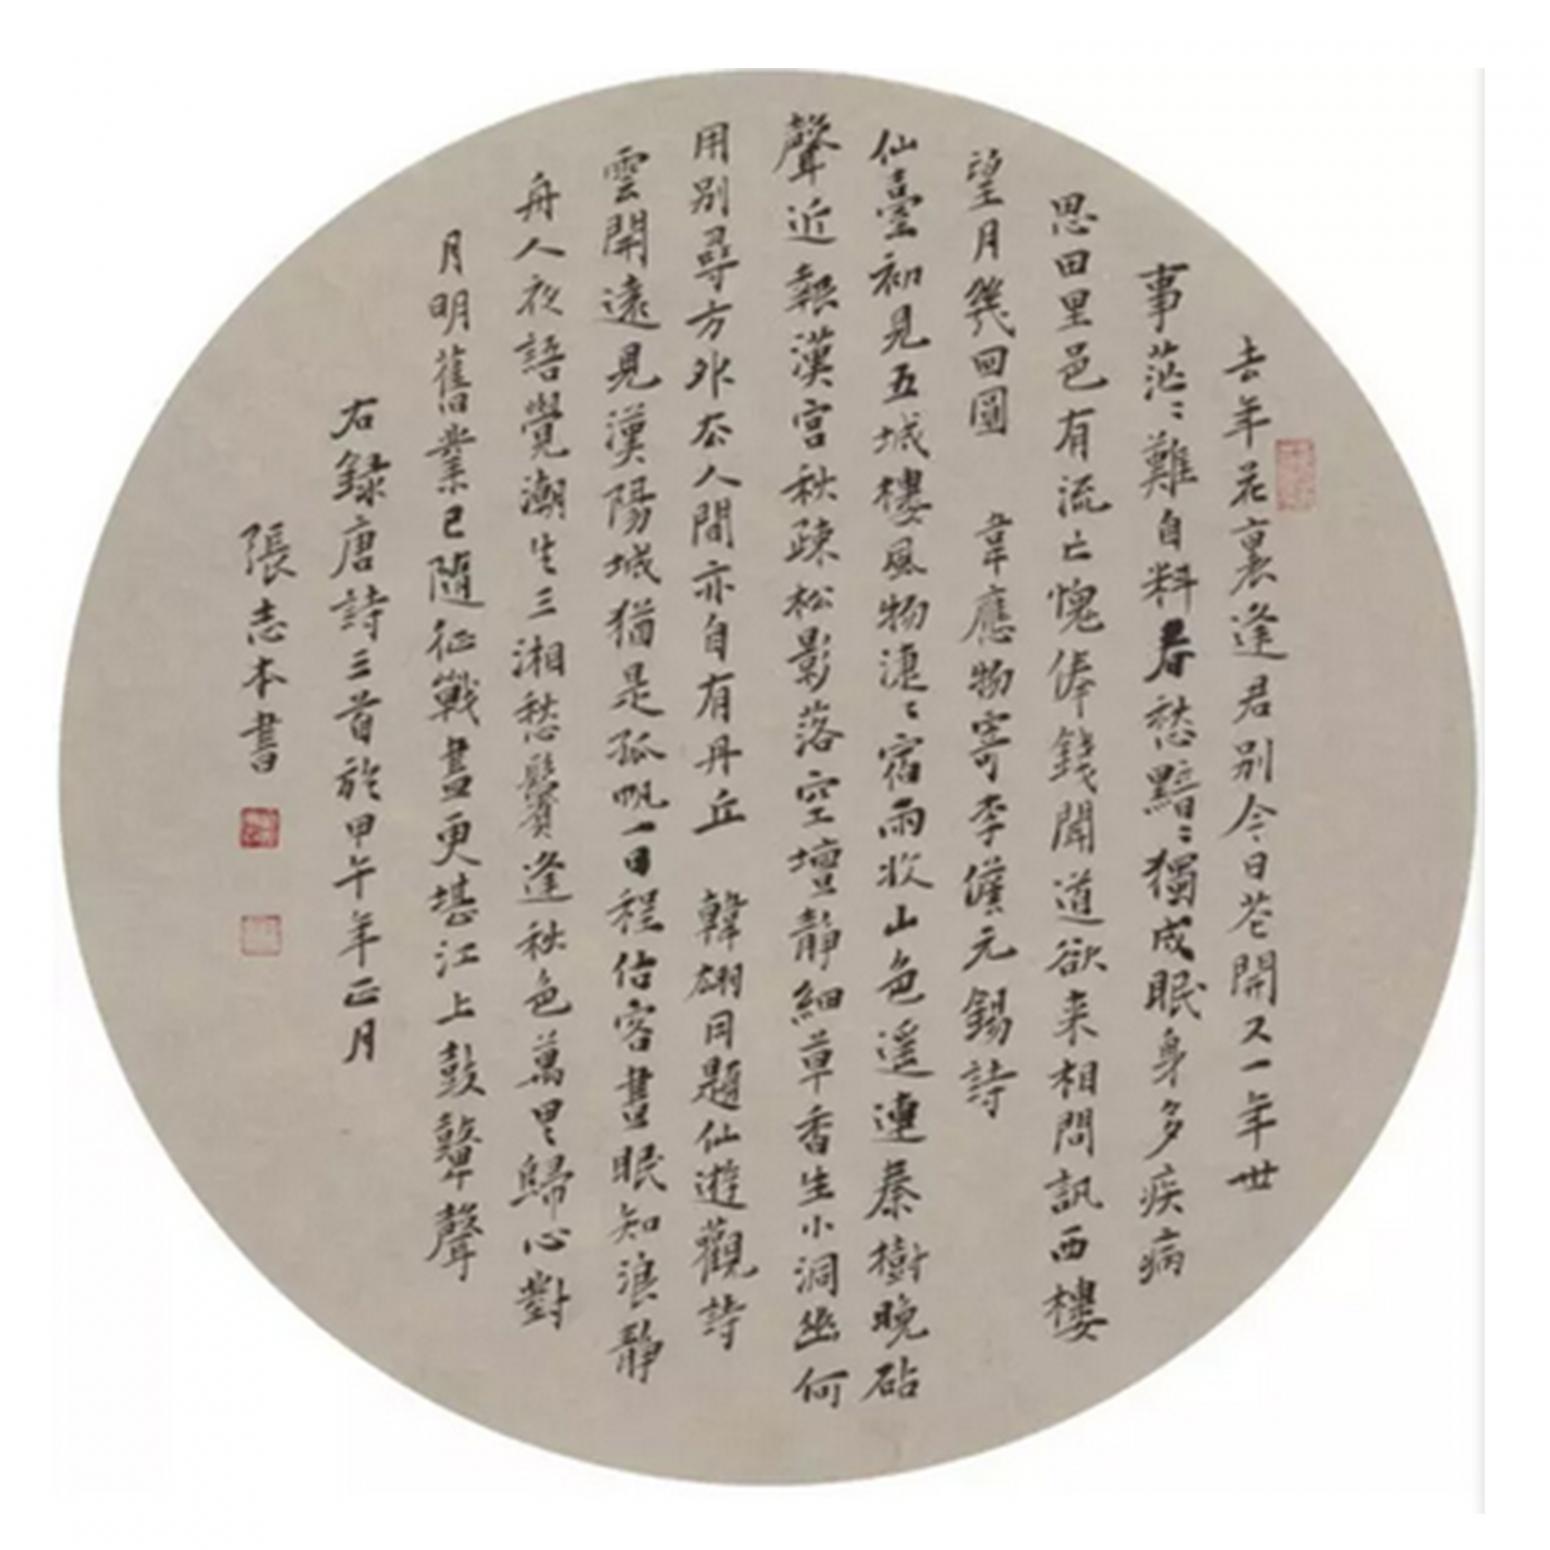 去年花裏逢君別今日花開又一年世
事茫〻難自料春愁黯〻獨成眠身多疾病
思田里邑有流亡愧俸錢聞道欲来相問訊西樓
望月幾回圓 韋應物寄李儋元錫詩
仙臺初見五城樓風物淒〻宿雨收山色遥連秦樹晚砧
聲近報漢宮秋疎松影落空壇靜細草香生小洞幽何
用別尋方外去人間亦自有丹丘 韓翃同題仙遊觀詩
雲開遠見漢陽城猶是孤帆一日程估客晝眠知浪靜
舟人夜語覺潮生三湘愁鬢逢秋色萬里歸心對
月明舊業已隨征戰盡更堪江上鼓鼙聲
右録唐詩三首於甲午年正月
張志本書